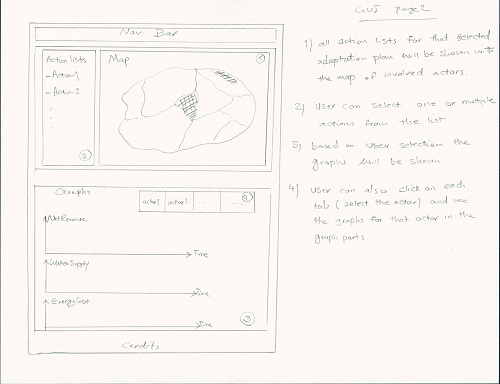 GUI page 2
Nav Bar
Action lists
- Action1
- Action 2
2
Map
1
Graphs
actor1 actor2 ..... ...
4
Net Revenue
Time
Water Supply
Time
Energy Cost
Time
3
Credits
1) all action lists for that selected
adaptation plan will be shown with
the map of involved actors.
2) User can select one or multiple
actions from the list
3) based on user selection the
graphs will be shown
4) user can also click on each
tab (select the actor) and see
the graphs for that actor in the
graph parts